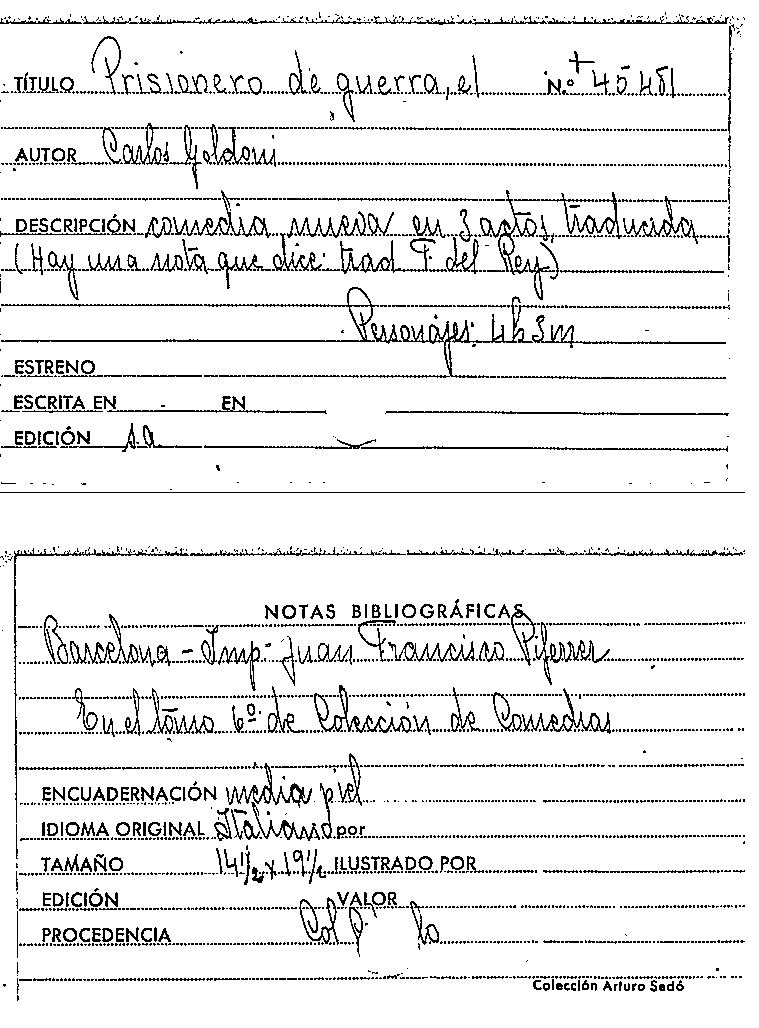 TÍTULO Prisionero de guerra, el N.º+ 45481
AUTOR Carlos Goldoni
DESCRIPCIÓN comedia nueva en 3 actos, traducida
(Hay una nota que dice: trad F. del Rey)
Personajes: 4h 3m
ESTRENO
ESCRITA EN - EN
EDICIÓN s.a.
NOTAS BIBLIOGRÁFICAS
Barcelona - Imp. Juan Francisco Piferrer
En el tomo 6º de Colección de Comedias
ENCUADERNACIÓN media piel
IDIOMA ORIGINAL Italiano por
TAMAÑO 14½ x 19½ ILUSTRADO POR
EDICIÓN VALOR
PROCEDENCIA Col
Colección Arturo Sedó